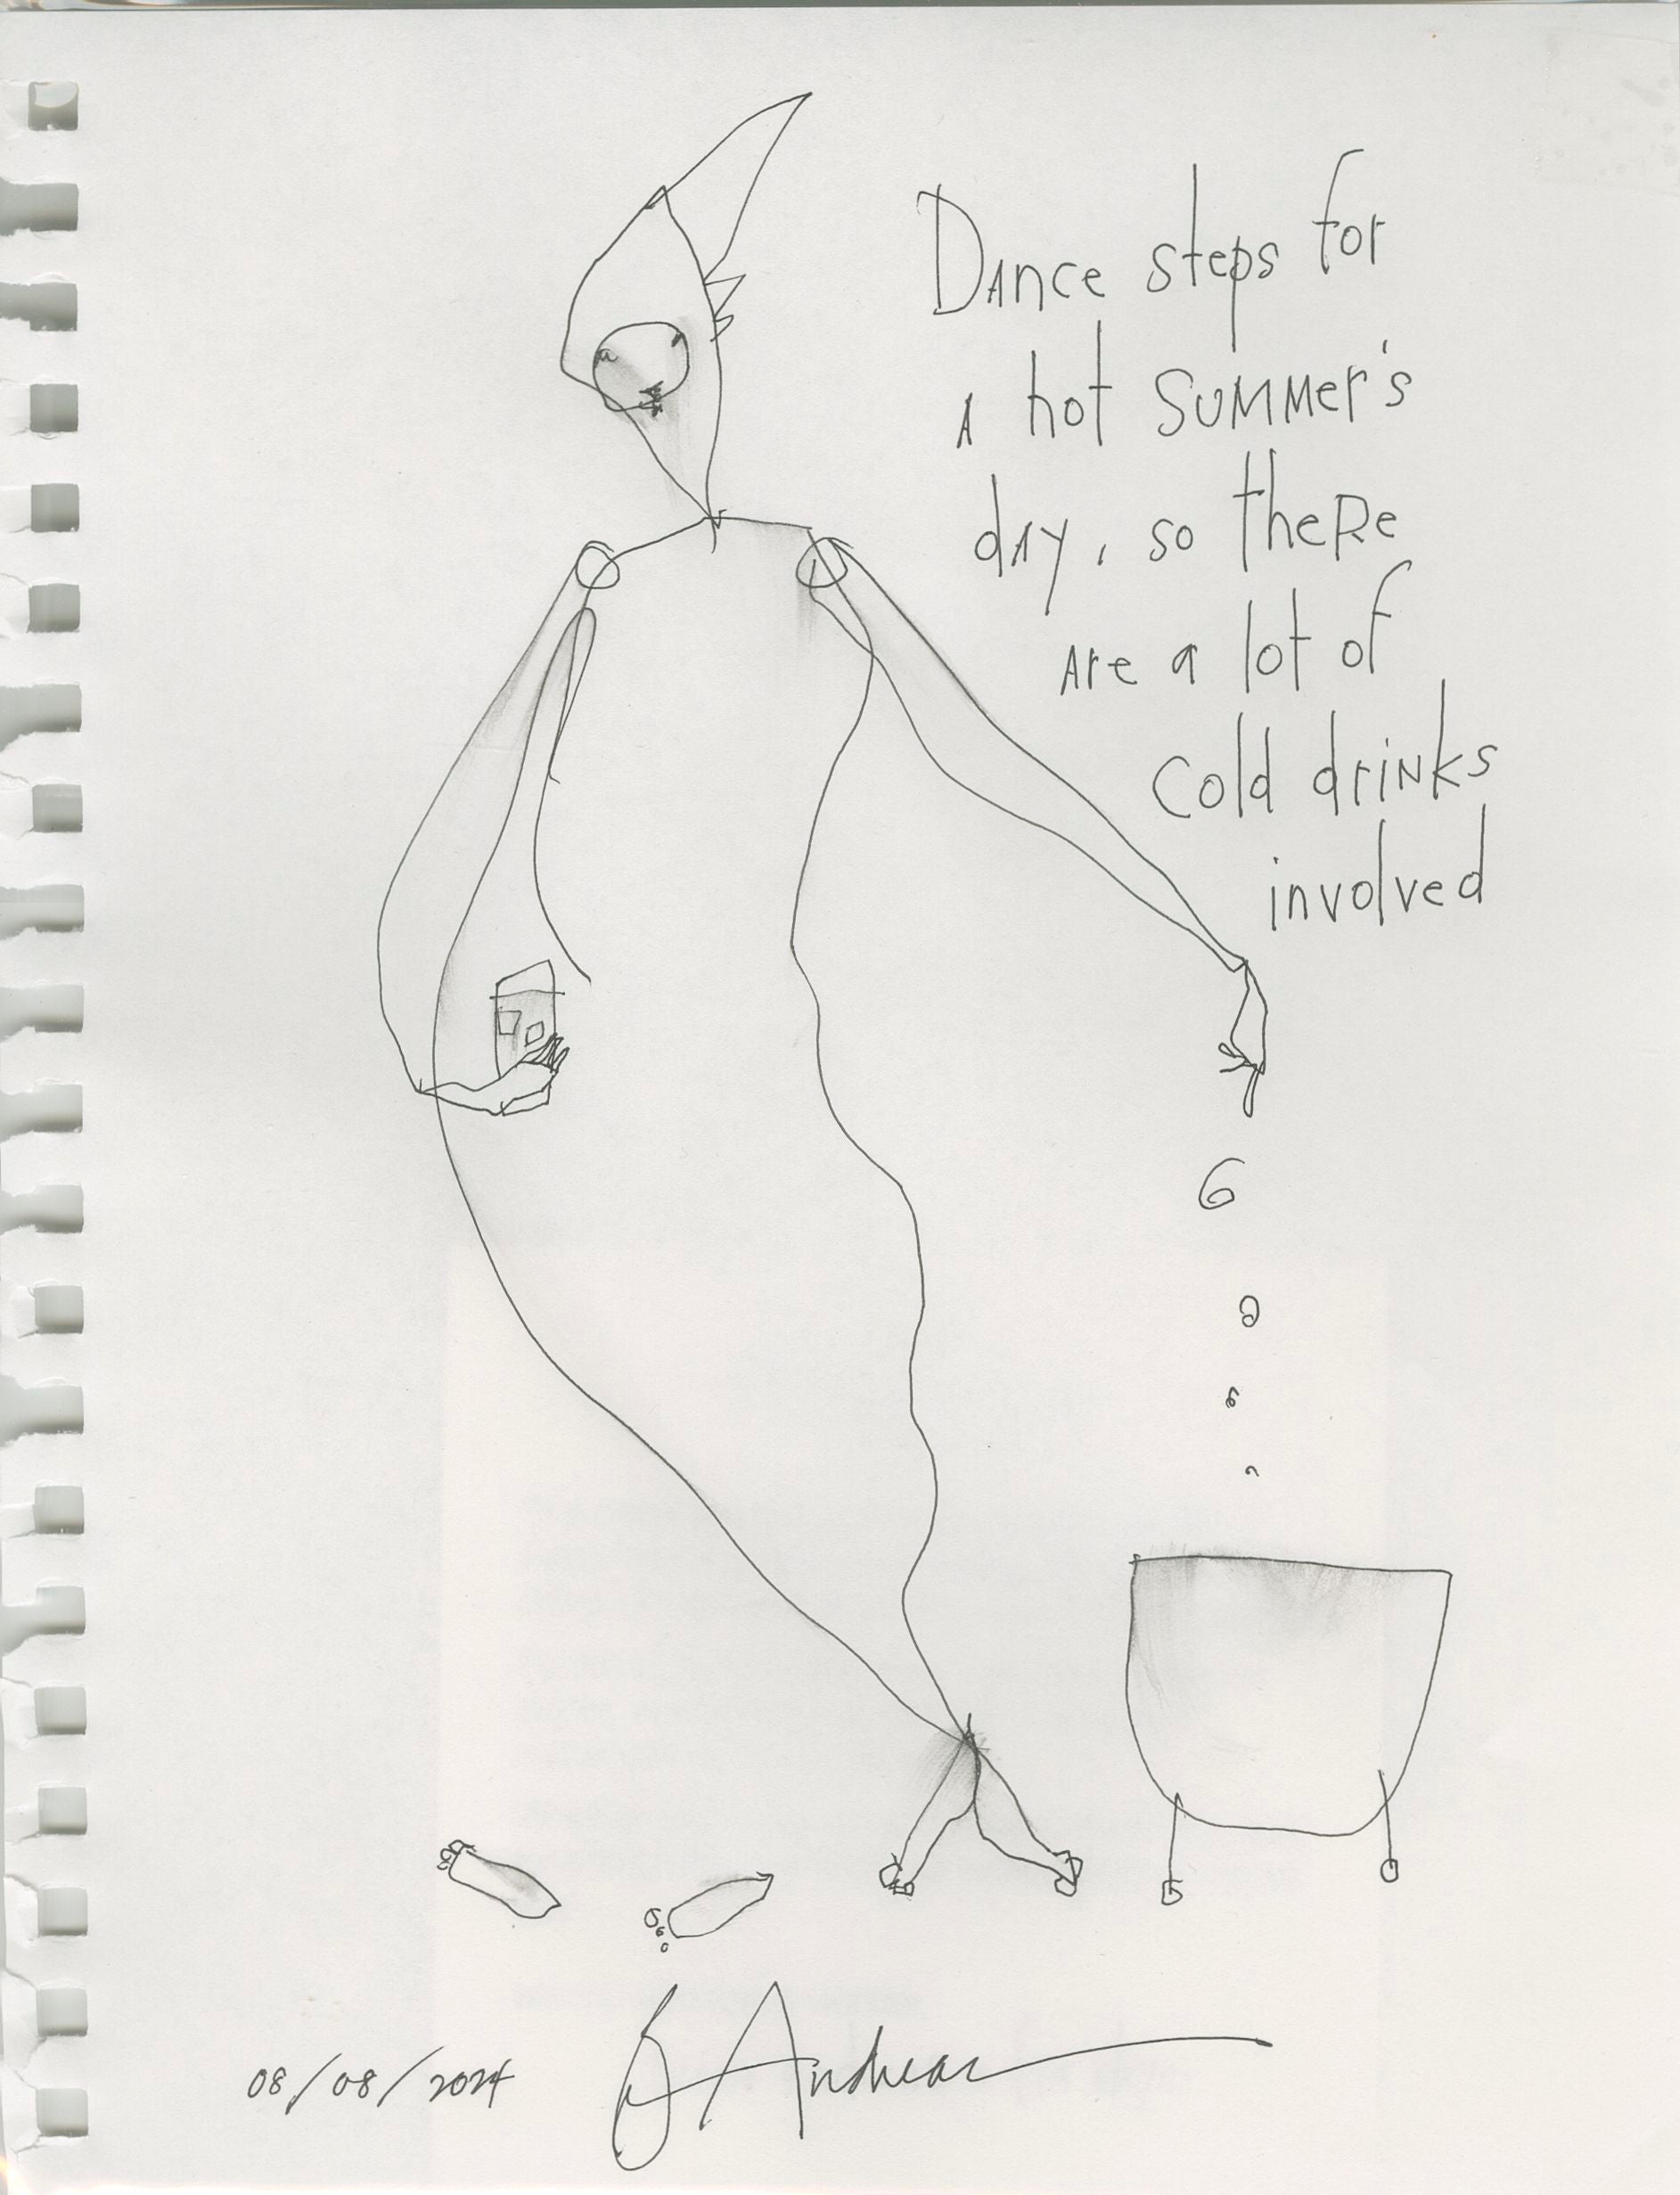 Dance steps for
a hot summer's
day, so there
are a lot of
cold drinks
involved
08/08/2024 Andreas